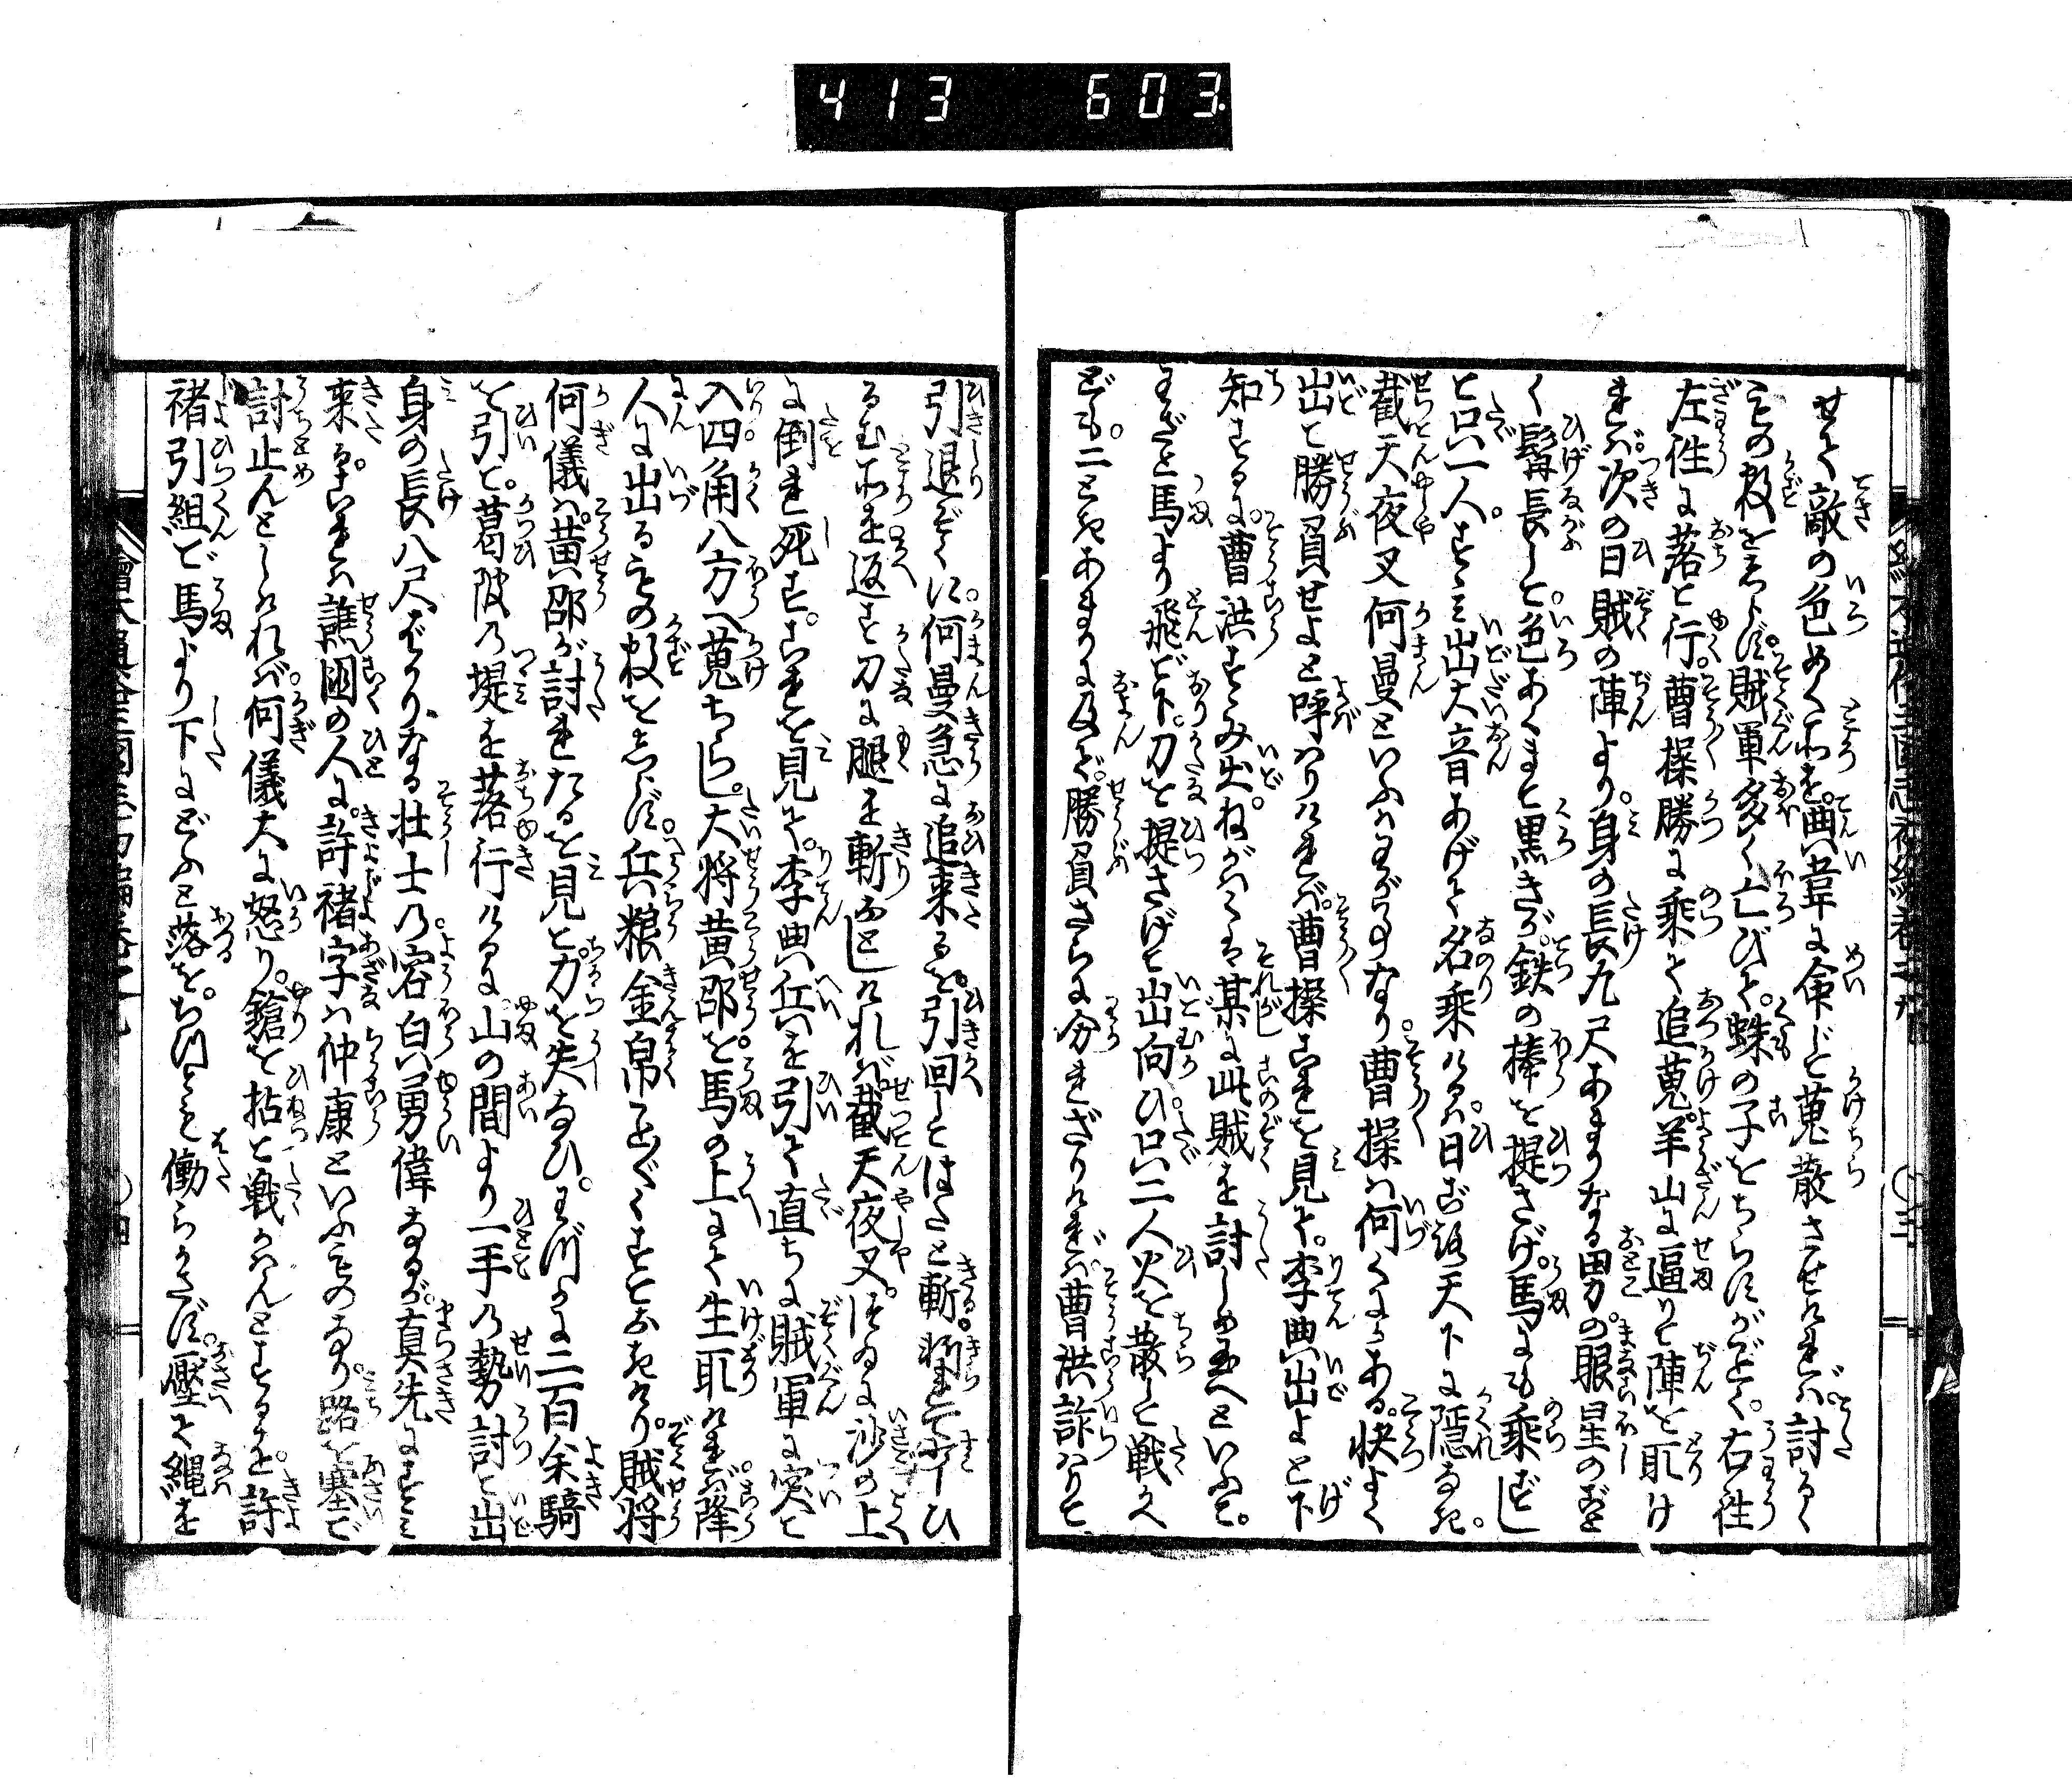 413 603
せて敵の色めく所を典韋に命じ蒐散させければ討るゝ
ものの数をしらず賊軍多く亡びて蜘の子をちらすがごとく右往
左往に落て行曹操勝に乗て追蒐羊山に逼りて陣を取け
れば次の日賊の陣より身の長九尺あまりなる男の眼星のごと
く髯長して色あくまで黒きが鉄の棒を提さげ馬にも乗ずし
て只一人すゝみ出大音あげて名乗けるは日ごろ天下に隠なき
截天夜叉何曼といふはわが事なり曹操は何くにある快よく
出て勝負せよと呼はりければ曹操これを見て李典出よと下
知するに曹洪すゝみ出ねがはくは某に此賊を討しめ玉へといふて
わざと馬より飛で下刀を提さげて出向ひ只二人火を散し戦へ
ども二ときあまりに及で勝負さらに分れざりければ曹洪詐はりて
引退ぞくに何曼急に追来るを引回してはたと斬斬れてひ
るむ所を返す刀に腿を斬おとしければ截天夜叉つゐに沙の上
に倒れ死すこれを見て李典兵を引て直ちに賊軍に突て
入四角八方へ蒐ちらし大将黄邵を馬の上にて生取ければ降
人に出るもの数をしらず兵粮金帛こと〴〵くすておきけり賊将
何儀は黄邵が討れたるを見て力を失なひわづかに二百余騎
を引て葛陂の堤を落行けるに山の間より一手の勢討て出
身の長八尺ばかりなる壮士の容白勇偉なるが真先にすゝみ
来るこれは譙国の人に許褚字は仲康といふものなり路を塞で
討止んとしければ何儀大に怒り鎗を拈て戦かはんとするを許
褚引組で馬より下にどふと落をちつとも働らかさず壓て縄を